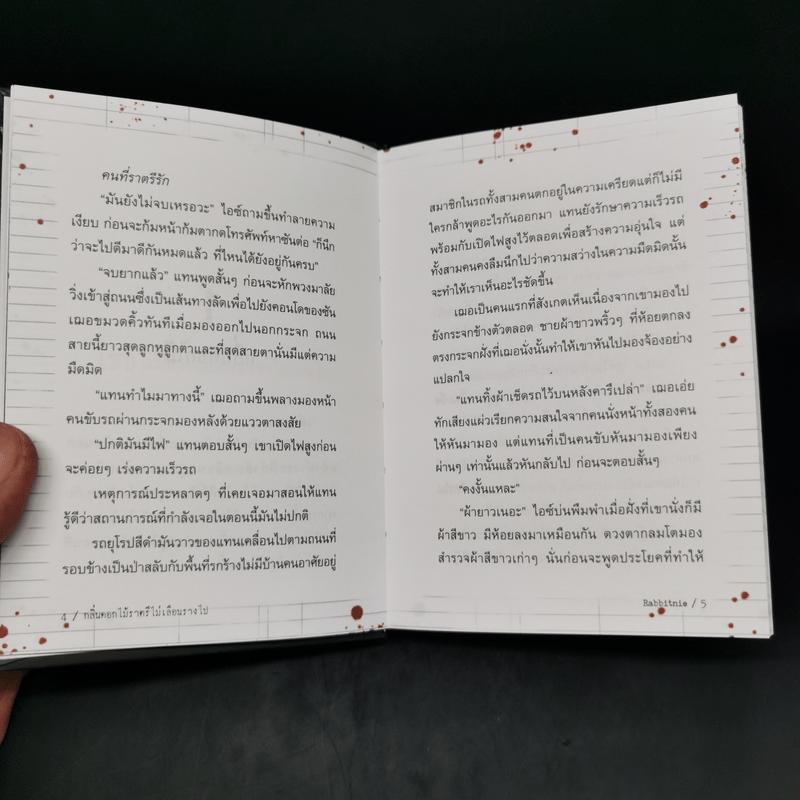 คนที่ราตรีรัก
“มันยังไม่จบเหรอวะ” ไอซ์ถามขึ้นทำลายความ
เงียบ ก่อนจะก้มหน้าก้มตากดโทรศัพท์หาซันต่อ “ก็นึก
ว่าจะไปดีมาดีกันหมดแล้ว ที่ไหนได้ยังอยู่กันครบ”
“จบยากแล้ว” แทนพูดสั้นๆ ก่อนจะหักพวงมาลัย
วิ่งเข้าสู่ถนนซึ่งเป็นเส้นทางลัดเพื่อไปยังคอนโดของซัน
เฌอขมวดคิ้วทันทีเมื่อมองออกไปนอกกระจก ถนน
สายนี้ยาวสุดลูกหูลูกตาและที่สุดสายตานั่นมีแต่ความ
มืดมิด
“แทนทำไมมาทางนี้” เฌอถามขึ้นพลางมองหน้า
คนขับรถผ่านกระจกมองหลังด้วยแววตาสงสัย
“ปกติมันมีไฟ” แทนตอบสั้นๆ เขาเปิดไฟสูงก่อน
จะค่อยๆ เร่งความเร็วรถ
เหตุการณ์ประหลาดๆ ที่เคยเจอมาสอนให้แทน
รู้ดีว่าสถานการณ์ที่กำลังเจอในตอนนี้มันไม่ปกติ
รถยุโรปสีดำมันวาวของแทนเคลื่อนไปตามถนนที่
รอบข้างเป็นป่าสลับกับพื้นที่รกร้างไม่มีบ้านคนอาศัยอยู่
4 / กลิ่นดอกไม้ราตรีไม่เลือนรางไป
สมาชิกในรถทั้งสามคนตกอยู่ในความเครียดแต่ก็ไม่มี
ใครกล้าพูดอะไรกันออกมา แทนยังรักษาความเร็วรถ
พร้อมกับเปิดไฟสูงไว้ตลอดเพื่อสร้างความอุ่นใจ แต่
ทั้งสามคนคงลืมนึกไปว่าความสว่างในความมืดมิดนั้น
จะทำให้เราเห็นอะไรชัดขึ้น
เฌอเป็นคนแรกที่สังเกตเห็นเนื่องจากเขามองไป
ยังกระจกข้างตัวตลอด ชายผ้าขาวพริ้วๆ ที่ห้อยตกลง
ตรงกระจกฝั่งที่เฌอนั่งนั้นทำให้เขาหันไปมองจ้องอย่าง
แปลกใจ
“แทนทิ้งผ้าเช็ดรถไว้บนหลังคารึเปล่า” เฌอเอ่ย
ทักเสียงแผ่วเรียกความสนใจจากคนนั่งหน้าทั้งสองคน
ให้หันมามอง แต่แทนที่เป็นคนขับหันมามองเพียง
ผ่านๆ เท่านั้นแล้วหันกลับไป ก่อนจะตอบสั้นๆ
“คงงั้นแหละ”
“ผ้ายาวเนอะ” ไอซ์บ่นพึมพำเมื่อฝั่งที่เขานั่งก็มี
ผ้าสีขาว มีห้อยลงมาเหมือนกัน ดวงตากลมโตมอง
สำรวจผ้าสีขาวเก่าๆ นั่นก่อนจะพูดประโยคที่ทำให้
Rabbitnie / 5